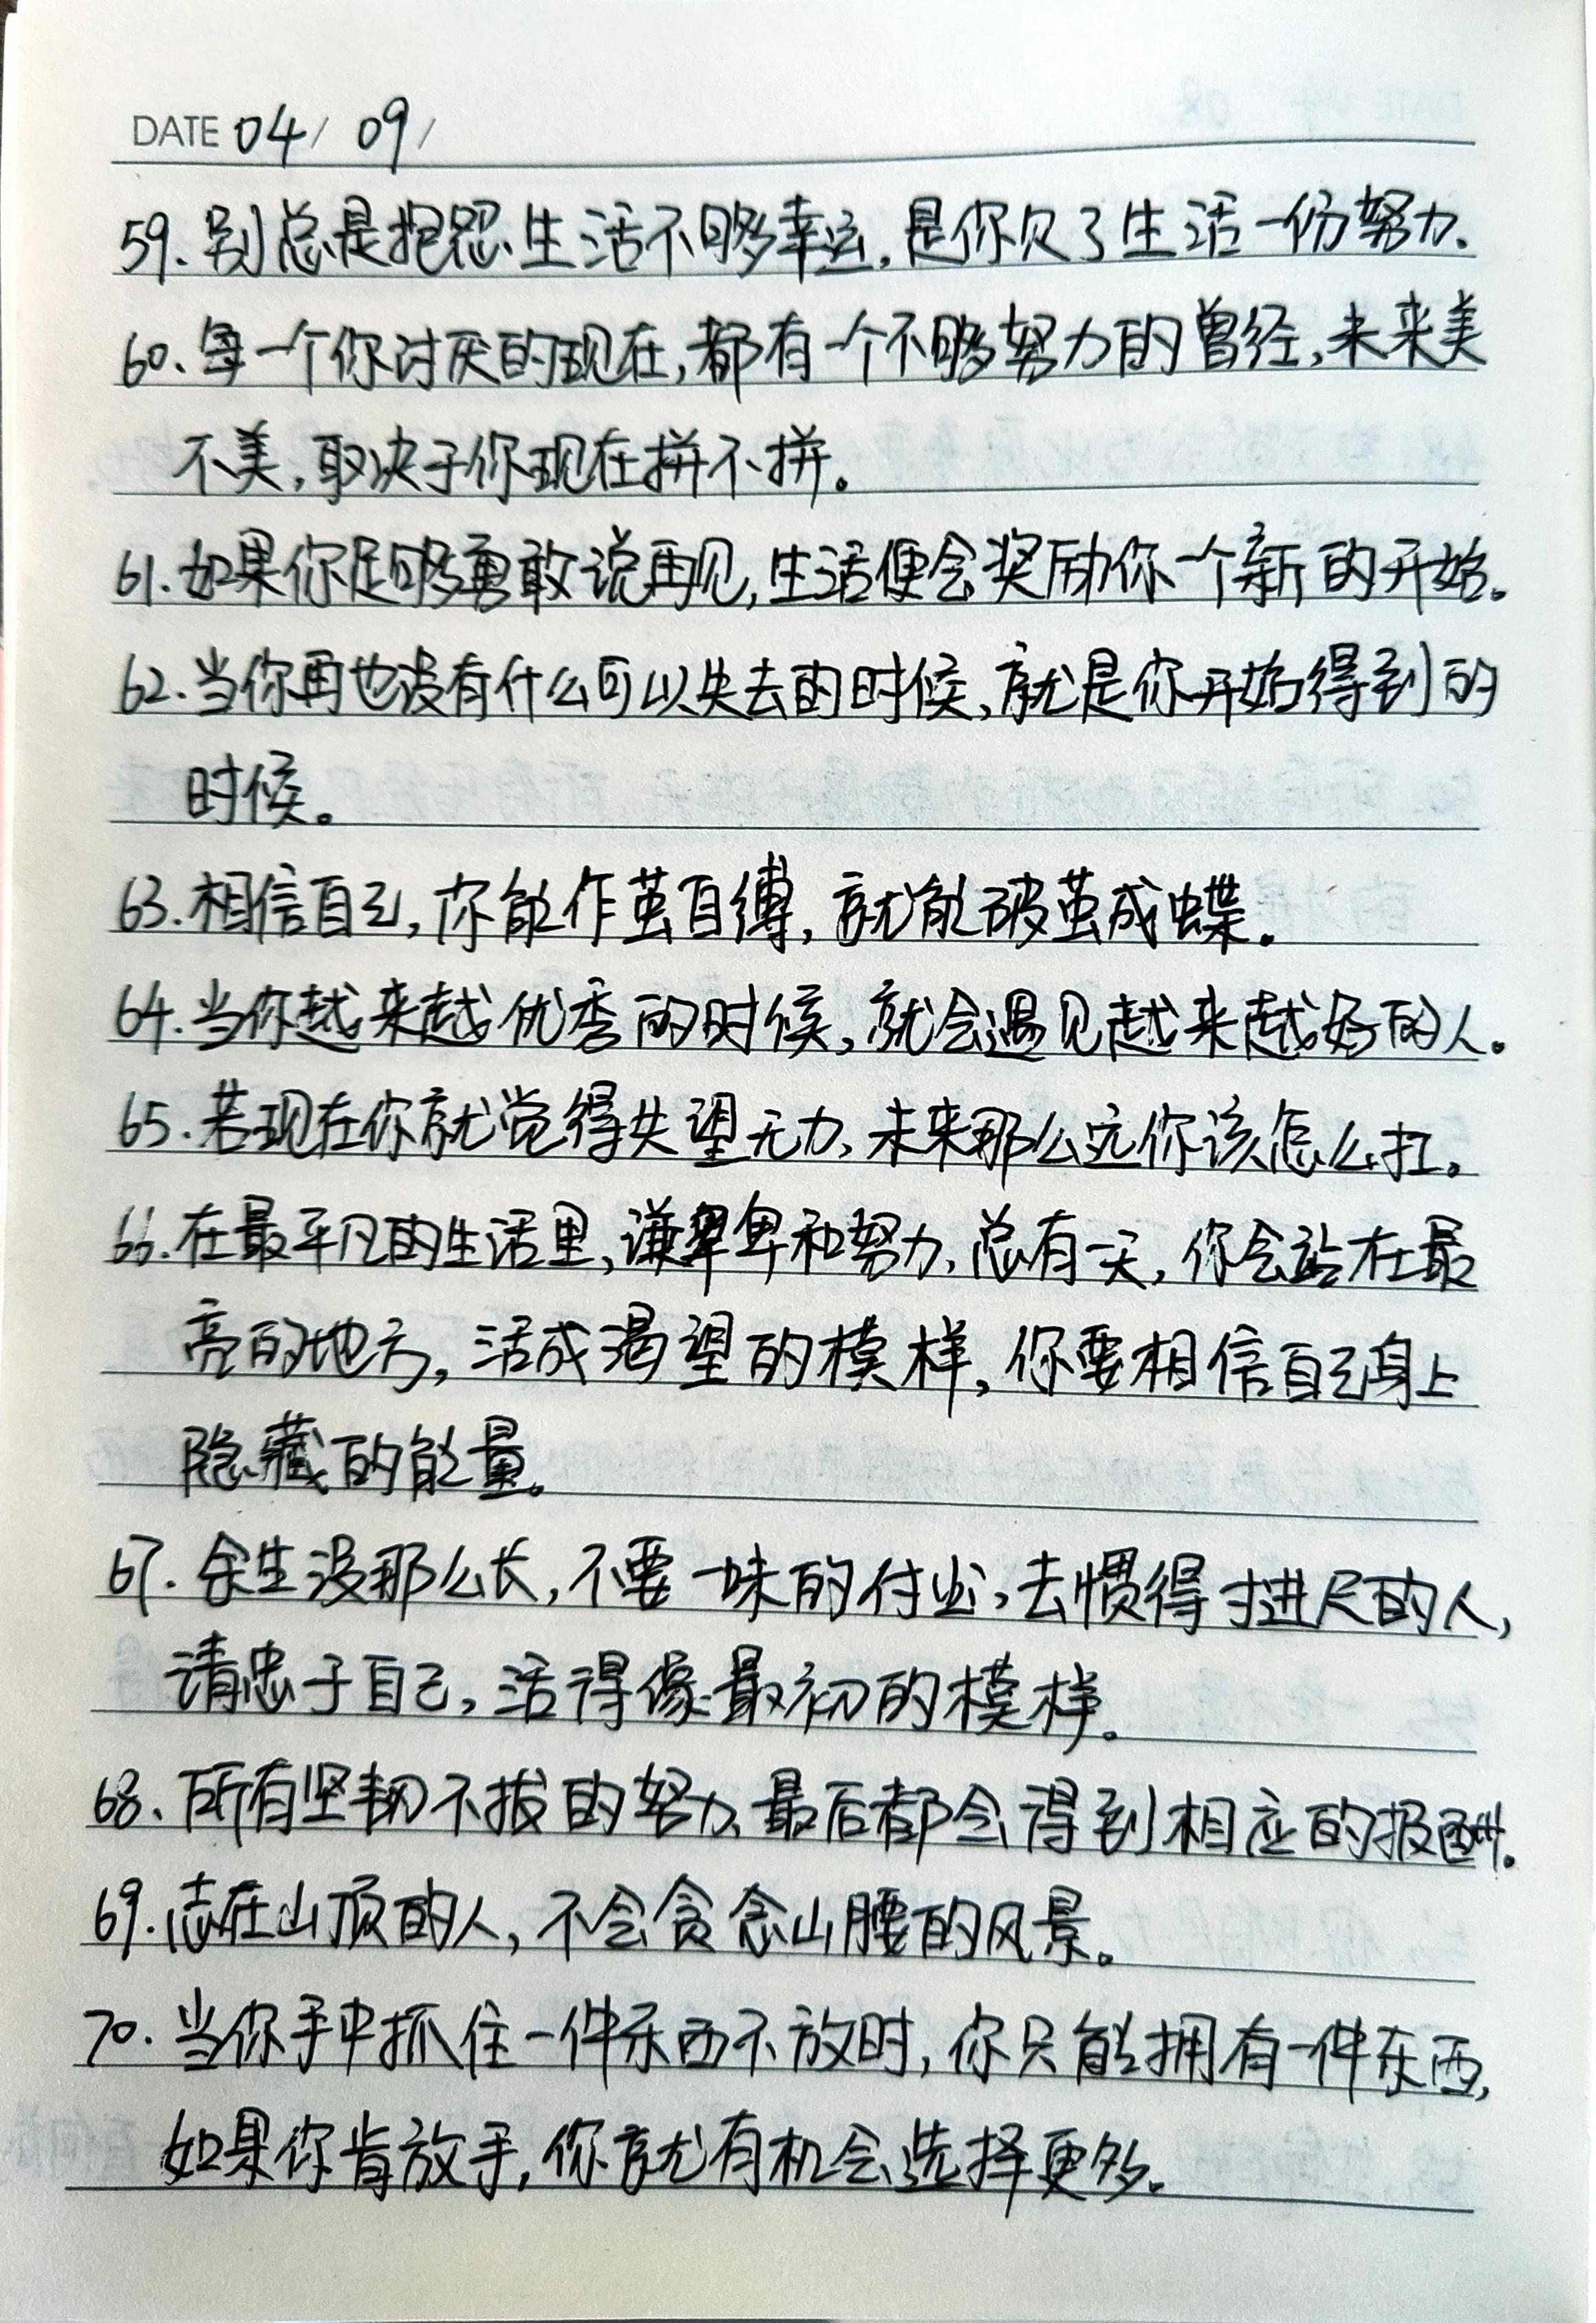 DATE 04/ 09/
59.别总是抱怨生活不够幸运,是你欠了生活一份努力.
60、每一个你讨厌的现在,都有一个不够努力的曾经,未来美
不美,取决于你现在拼不拼。
61.如果你足够勇敢说再见,生活便会奖励你一个新的开始。
62.当你再也没有什么可以失去的时候,就是你开始得到的
时候。
63.相信自己,你能作茧自缚,就能破茧成蝶。
64.当你越来越优秀的时候,就会遇见越来越好的人。
65.若现在你就觉得失望无力,未来那么远你该怎么扛。
66.在最平凡的生活里,谦卑和努力,总有一天,你会站在最
亮的地方,活成渴望的模样,你要相信自己身上
隐藏的能量。
67.余生没那么长,不要一味的付出,去惯得寸进尺的人,
请忠于自己,活得像最初的模样。
68、所有坚韧不拔的努力,最后都会得到相应的报酬。
69.志在山顶的人,不会贪念山腰的风景。
70.当你手中抓住一件东西不放时,你只能拥有一件东西,
如果你肯放手,你就有机会选择更多。